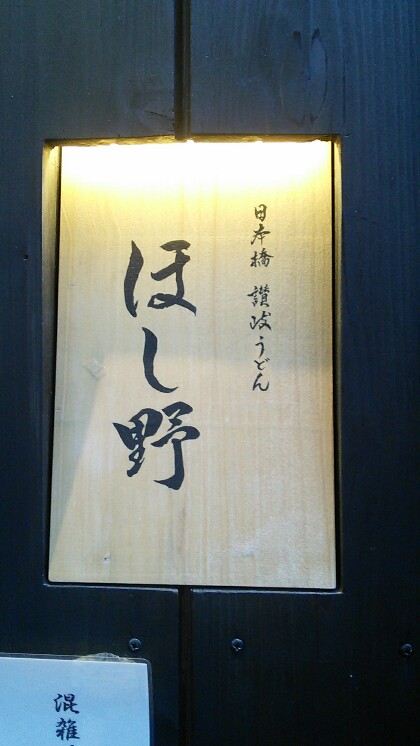 日本橋 讃岐うどん
ほし野
混雑